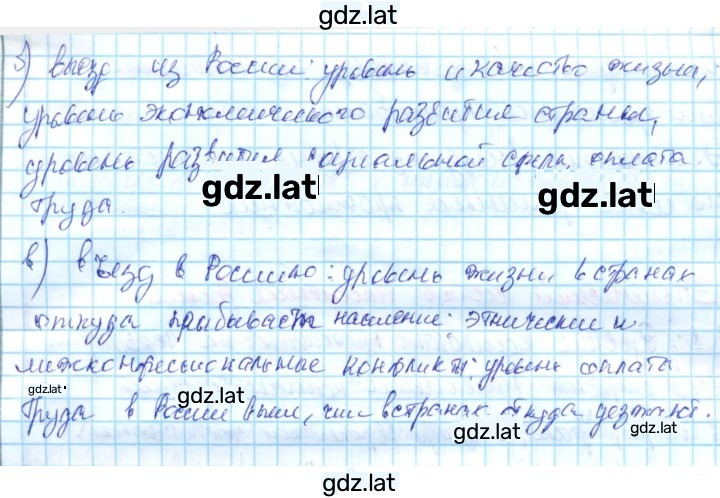 gdz.lat
б) выезд из России: уровень и качество жизни,
уровень экономического развития страны,
уровень развития социальной сферы, оплата
gdz.lat gdz.lat
труда.
в) въезд в Россию: уровень жизни в странах
откуда прибывает население; этнические и
межконфессиональные конфликты; уровень оплата
gdz.lat
труда в России выше, чем в странах откуда уезжают.
gdz.lat gdz.lat
gdz.lat